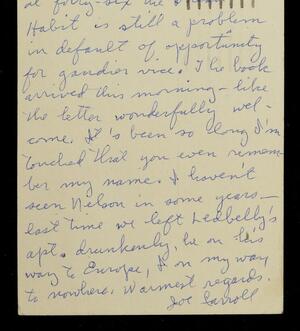 at forty-six the
Habit is still a problem
in default of opportunity
for gaudier vice. The book
arrived this morning – like
the letter wonderfully wel-
come. It's been so long I'm
touched that you even remem-
ber my name. I havent
seen Nelson in some years –
last time we left Leadbelly's
apt. drunkenly, he on his
way to Europe, I on my way
to nowhere. Warmest regards.
Joe Carroll